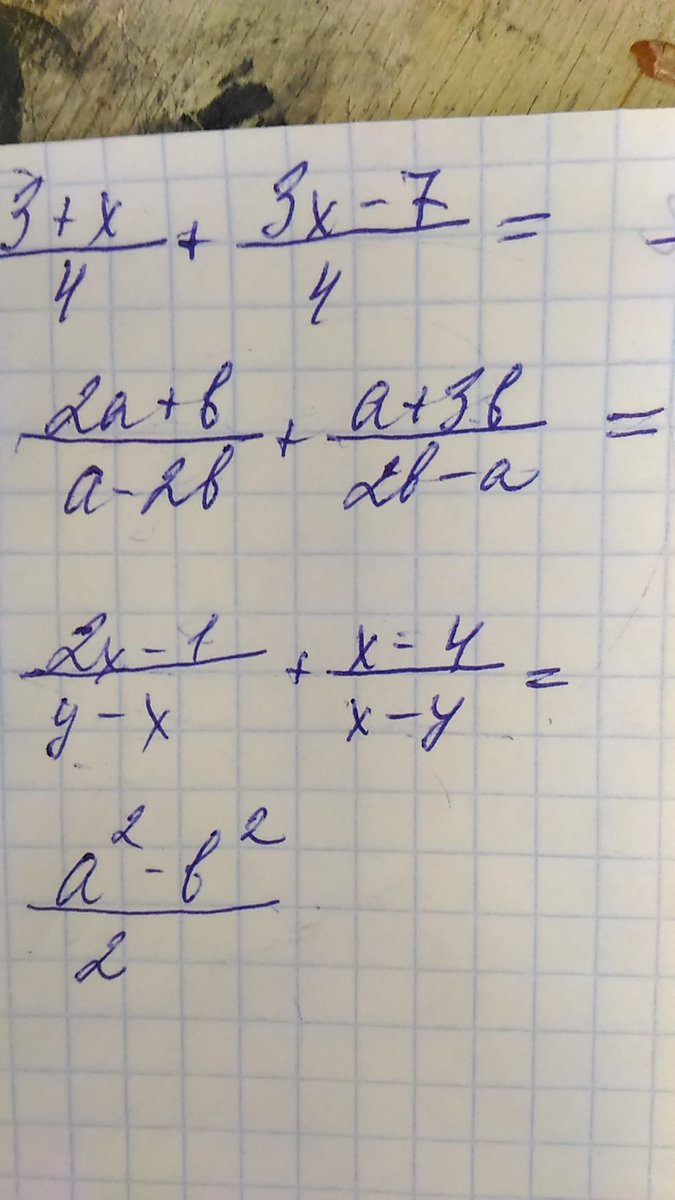 3+x/4 + 3x-7/4 =
2a+b/a-2b + a+3b/2b-a =
2x-1/y-x + x-4/x-y =
a²-b²/2